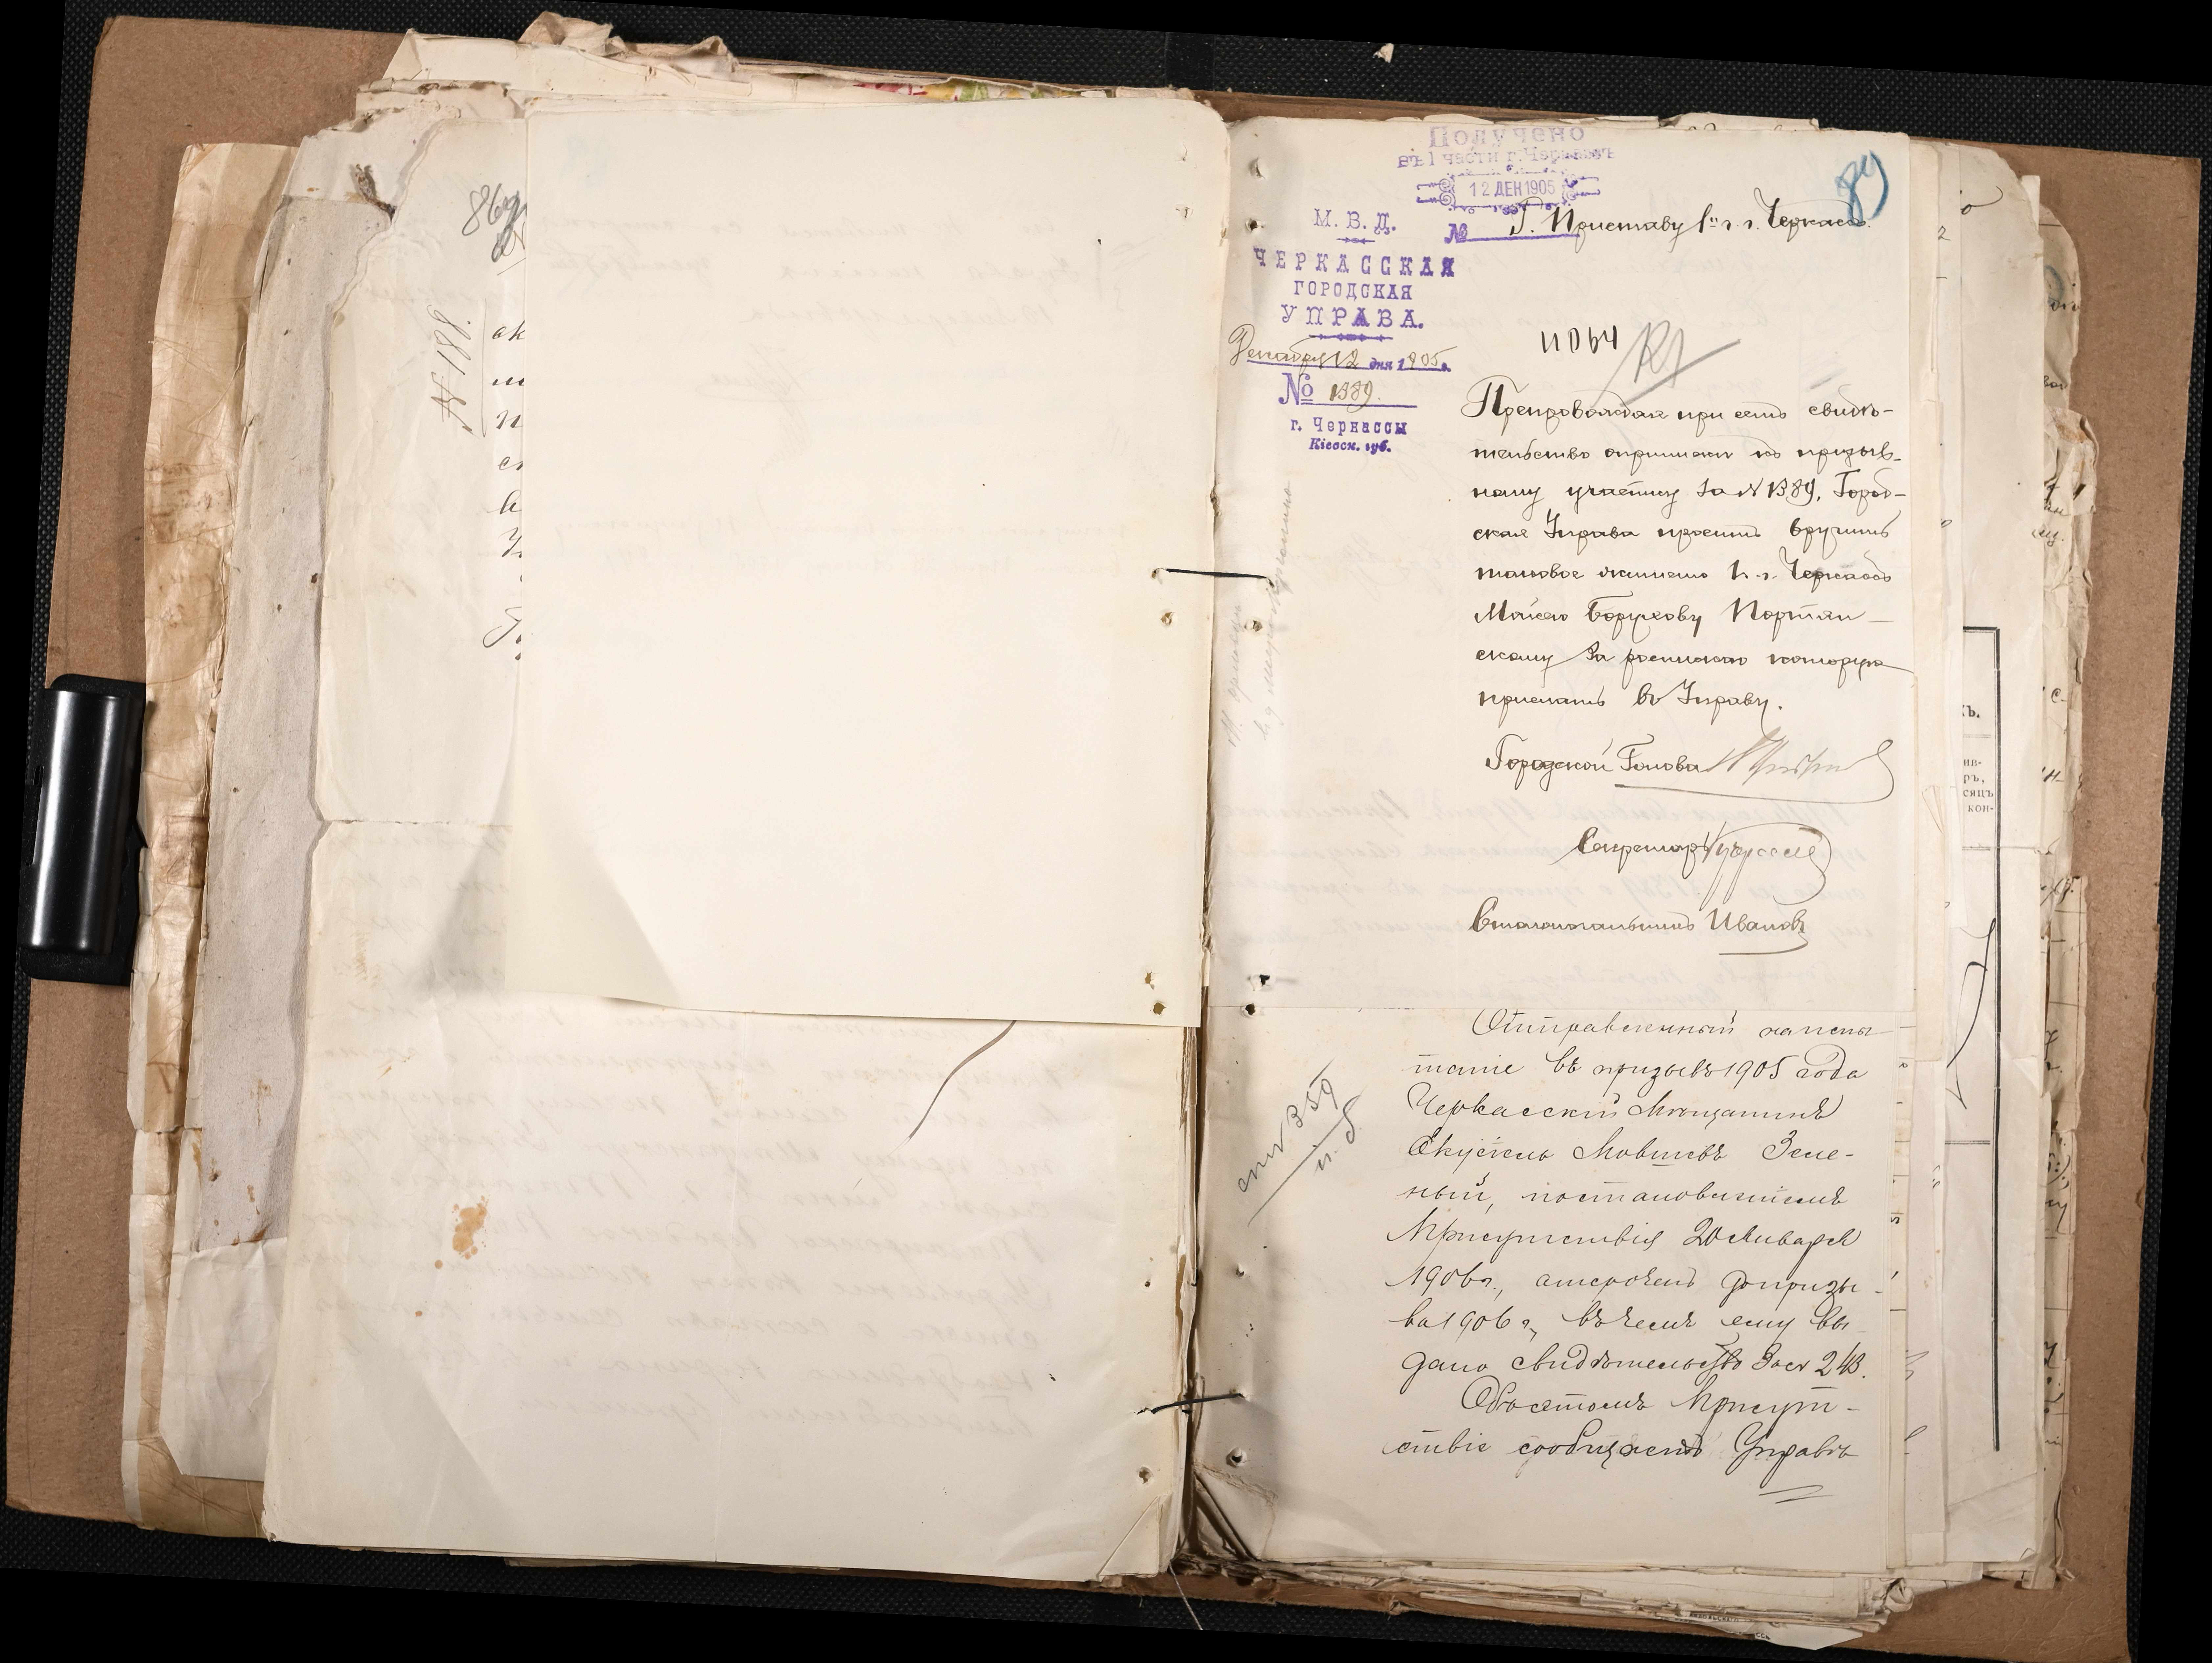 Получено
въ 1 части г. Черкассъ
12 ДЕК 1905
№
Г. Приставу 1й ч. г. Черкассъ
89
М. В. Д.
ЧЕРКАССКАЯ
ГОРОДСКАЯ
УПРАВА.
Декабря 12 дня 1905 г.
№ 1389.
г. Черкассы
Кіевск. губ.
11064
Препровождая при семъ свидѣ-
тельство о приписки къ призыв-
ному участку за № 1389, Город-
ская Управа проситъ вручить
таковое мѣщанину г. Черкассъ
Мойсею Борухову Портян-
скому за роспискою которую
прислать въ Управу.
Городской Голова
Секретарь
Столоначальникъ Ивановъ
Отправленный на испы-
таніе въ призывъ 1905 года
Черкасскій Мѣщанинъ
Екусіель Мовшевъ Зеле-
ный, постановленіемъ
Присутствія 20 Января
1906 г., отсроченъ до призы-
ва 1906 г., въ чемъ ему вы-
дано свидѣтельство за № 243.
Объ этомъ Присут-
ствіе сообщаетъ Управѣ
№ 188.
86